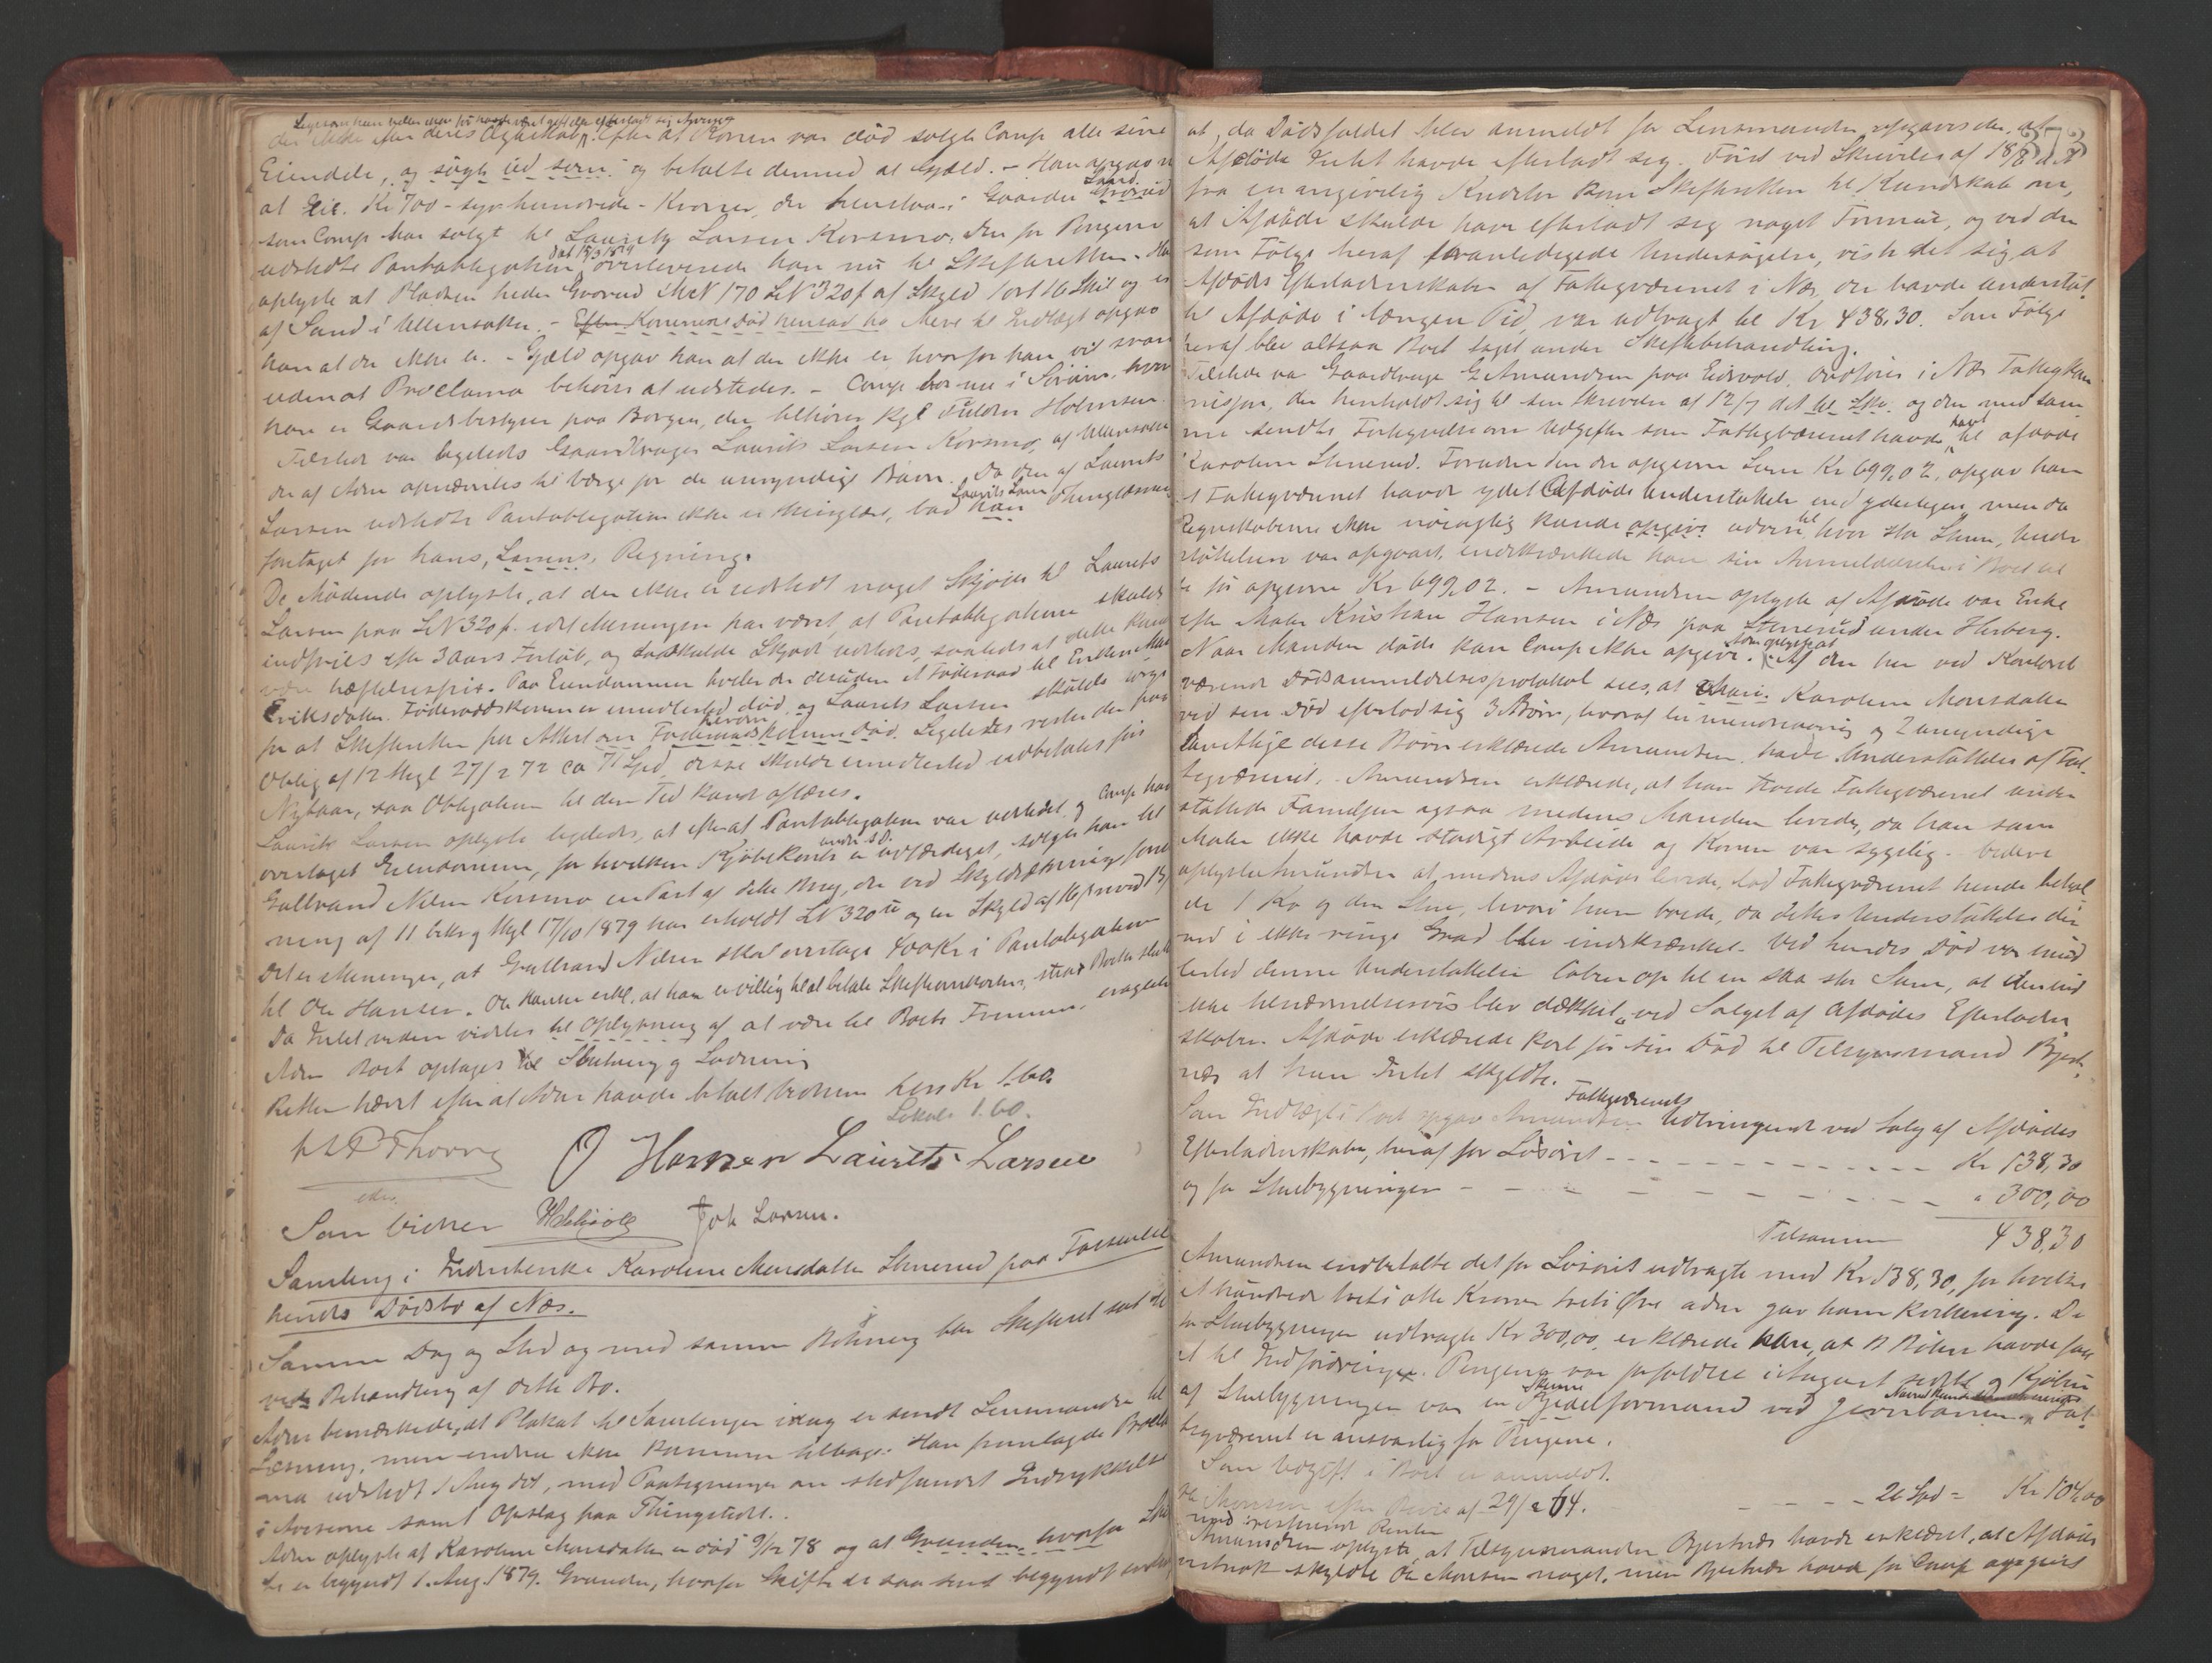 Ligesom han heller ikke før havde været gift eller efterladt sig Arvinger
der ikke efter deres Ægteskab. Efter at Konen var død solgte Comp. alle sine
Eiendele, og søgte ud som og betalte dermed al Gjæld. - Han opgav
at Eie. Kr 700 - syv hundrede - Kroner, der henstaa i Gaarden Sand Grorud
som Comp. har solgt til Laurits Larsen Korsmo. Den for Pengene
udstedte Pantobligation dat 15/3 1879 overleverede han nu til Skifteretten. Han
oplyste at Pladsen heder Grorud MN 170 LN 320f af Skyld 1 ort 16 Skil og er
af Sand i Ullensaker. - Efter Konenens Død hensad ha Mere til Indtægt opgav
han at der ikke er. - Gjæld opgav han at der ikke er, hvorfor han vil svare
uden at Proclama behøves at udstedes. - Comp. bor nu i Sørum, hvor
han er Gaardsbestyrer paa Borgen, der tilhører Kgl Fuldm Holmsen.
Tilstede var ligeledes Gaardbruger Laurits Larsen Korsmo, af Ullensaker
der af Adm opnævntes til Værge for de umyndige Børn. Da den af Laurits
Larsen udstedte Pantobligation ikke er thinglæst, bad Laurits Larsen han Thinglæsning
foretaget for hans, Larsens, Regning.
De Mødende oplyste, at der ikke er udstedt noget Skjøde til Laurits
Larsen paa LN 320f. idet Meningen har været, at Pantobligationen skulde
indfries efter 3 Aars Forløb, og da skulde Skjøde udstedes, saaledes at dette kunde
være hæftelsesfrit. Paa Eiendommen hviler der desuden et Føderaad til Enken Mari
Eriksdatter. Føderaadskonen er imidlertid død, og Laurits Larsen skulde sørge
for at Skifteretten fik Attest om herom Føderaadskonens Død. Ligeledes rester der paa
Oblig af 12 thgl 27/2 72 ca 71 Spd, disse skulde imidlertid udbetales før
Nytaar, saa Obligation til den Tid kunde aflæses.
Laurits Larsen oplyste ligeledes, at efterat Pantobligationen var udstedet og Comp har
overtaget Eiendommen, for hvilken Kjøbekontr under s D er udfærdiget, solgte han til
Gulbrand Nilsen Korsmo en Part af dette Brug, der ved Skyldsætningsforret
ning af 11 beks og thgl 17/10 1879 har erholdt LN 320 u og en Skyld af
Det er Meningen, at Gulbrand Nilsen skal overtage 400 Kr i Pantobligationen
til Ole Hansen. Ole Hansen erkl. at han er villig til at betale Skifteomkostn, strax Boets slutt
Da Intet videre vidstes til Oplysning af at være til Boets Fremme, eragtede
Adm Boet optaget til Slutning og Lodning
Retten hævet efter at Adm havde betalt Vidnerne hver Kr 1.60.
Lokale 1.60.
H P Thorne O Hansen Laurits Larsen
Som Vidner Joh Larsen.
Samling i Inderstenke Karoline Monsdatter Stenerud paa Fossum
hendes Dødsbo af Næs.
Samme Dag og Sted og med samme Betjening blev Skifteret sat til
vedr Behandling af dette Bo.
Adm bemærkede, at Plakat til Samlingen idag er sendt Lensmanden til
Læsning, men endnu ikke kommen tilbage. Han fremlagde Procla
ma udstedt 1 Aug det, med Paategninger om stedfundet Indrykkelse
i Aviserne samt Opslag paa Thingstedet.
Adm oplyste at Karoline Monsdatter er død 9/12 78 og at Grunden, hvorfor Ski
fte er begyndt 1. Aug. 1879. Grunden, hvorfor Skiftet er saa sent begyndt
373
at, da Dødsfaldet blev anmeldt for Lensmanden, opgaves der, at
Afdøde Intet havde efterladt sig. Først ved Skrivelse af 18/6 d A
fra en angivelig Kreditor kom Skifteretten til Kundskab om,
at Afdøde skulde have efterladt sig noget Formue, og ved den
som Følge heraf foranledigede Undersøgelse, viste det sig, at
Afdødes Efterladenskaber af Fattigvæsenet i Næs, der havde understøt
tet Afdøde i længere Tid, var udbragt til Kr 438,30. Som Følge
heraf blev altsaa Boet taget under Skiftebehandling.
Tilstede var Gaardbruger G Amundsen paa Eidsvold, Ordfører i Næs Fattigkom
mission, der henholdt sig til sin Skrivelse af 12/7 det til Ske. og den med sam
me sendte Fortegnelse over Udgifter som Fattigvæsenet havde havt til afdøde
Karoline Stenerud. Foruden den der opgivne Sum Kr 699,02, opgav han
at Fattigvæsenet havde ydet Afdøde Understøttelse end yderligere, men da
Regnskaberne ikke nøiagtig kunde opgive udvise til hvor stor Sum, Under
støttelsen var opgaaet, indskrænkede han sin Anmeldelse i Boet til
de før opgivne Kr 699,02. - Amundsen oplyste at Afdøde var Enke
efter Maler Kristian Hansen i Næs paa Stenerud under Herberg.
Naar Manden døde kan Comp ikke opgive. som oplyst at Af den her ved Kontoret
værende Dødsanmeldelsesprotokol sees, at Mari. Karoline Monsdatter
ved sin Død efterlod sig 3 Børn, hvoraf en mindreaarig og 2 umyndige
Samtlige disse Børn erklærede Amundsen, havde Understøttelse af Fat-
tigvæsenet. Amundsen erklærede, at han troede Fattigvæsenet under
støttede Familien ogsaa medens Manden levede, da han som
Maler ikke havde stadigt Arbeide og Konen var sygelig. Videre
oplyste Amundsen at medens Afdøde levede, lod Fattigvæsenet hende behol
de 1 Ko og den Stue, hvori hun boede, da dettes Understøttelse der
ved i ikke ringe Grad blev indskrænket. Ved hendes Død var imid
lertid denne Understøttelse løben op til en saa stor Sum, at den end
ikke tilnærmelsesvis blev dækket ved Salget af Afdødes Efterladen
skaber. Afdøde erklærede kort før sin Død til Tilsynsmand Bjert
næs at hun Intet skyldte.
Som Indtægt i Boet opgav Amundsen Fattigvæsenets Udbringende ved Salg af Afdødes
Efterladenskaber, heraf for Løsøret - - - - - Kr 138,30
og for Stuebygningen - - - - - " 300,00
Tilsammen 438,30
Amundsen indbetalte det for Løsøret udbragte med Kr 138,30, for hvilke
et hundrede treti otte Kroner treti Øre Adm gav ham Kvittering. De
for Stuebygningen udbragte Kr 300,00 erklærede han, at havde faa
et til Indfordring. Pengene var forfaldne i August sidstl. og Kjøberen
af Stuebygningen var en Stenne Bjedelformand ved Jernbanen, Fat
tigvæsenet er ansvarlig for Pengene.
Som Udgift i Boet er anmeldt.
Ole Monsen efter Bevis af 29/2 64. - - - - 26 Spd = Kr 104,00
med resterende Renter
Amundsen oplyste, at Tilsynsmanden Bjertnæs havde erklæret, at Afdøde
vistnok skyldte Ole Monsen noget, men Bjertnæs havde for Comp opgivet